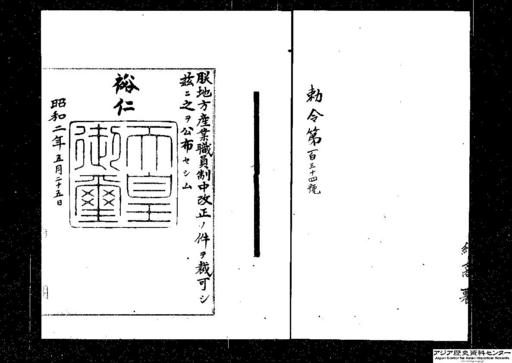 勅令第百三十四號
朕地方産業職員制中改正ノ件ヲ裁可シ
茲ニ之ヲ公布セシム
裕仁
天皇
御璽
昭和二年五月二十五日
アジア歴史資料センター
Japan Center for Asian Historical Records